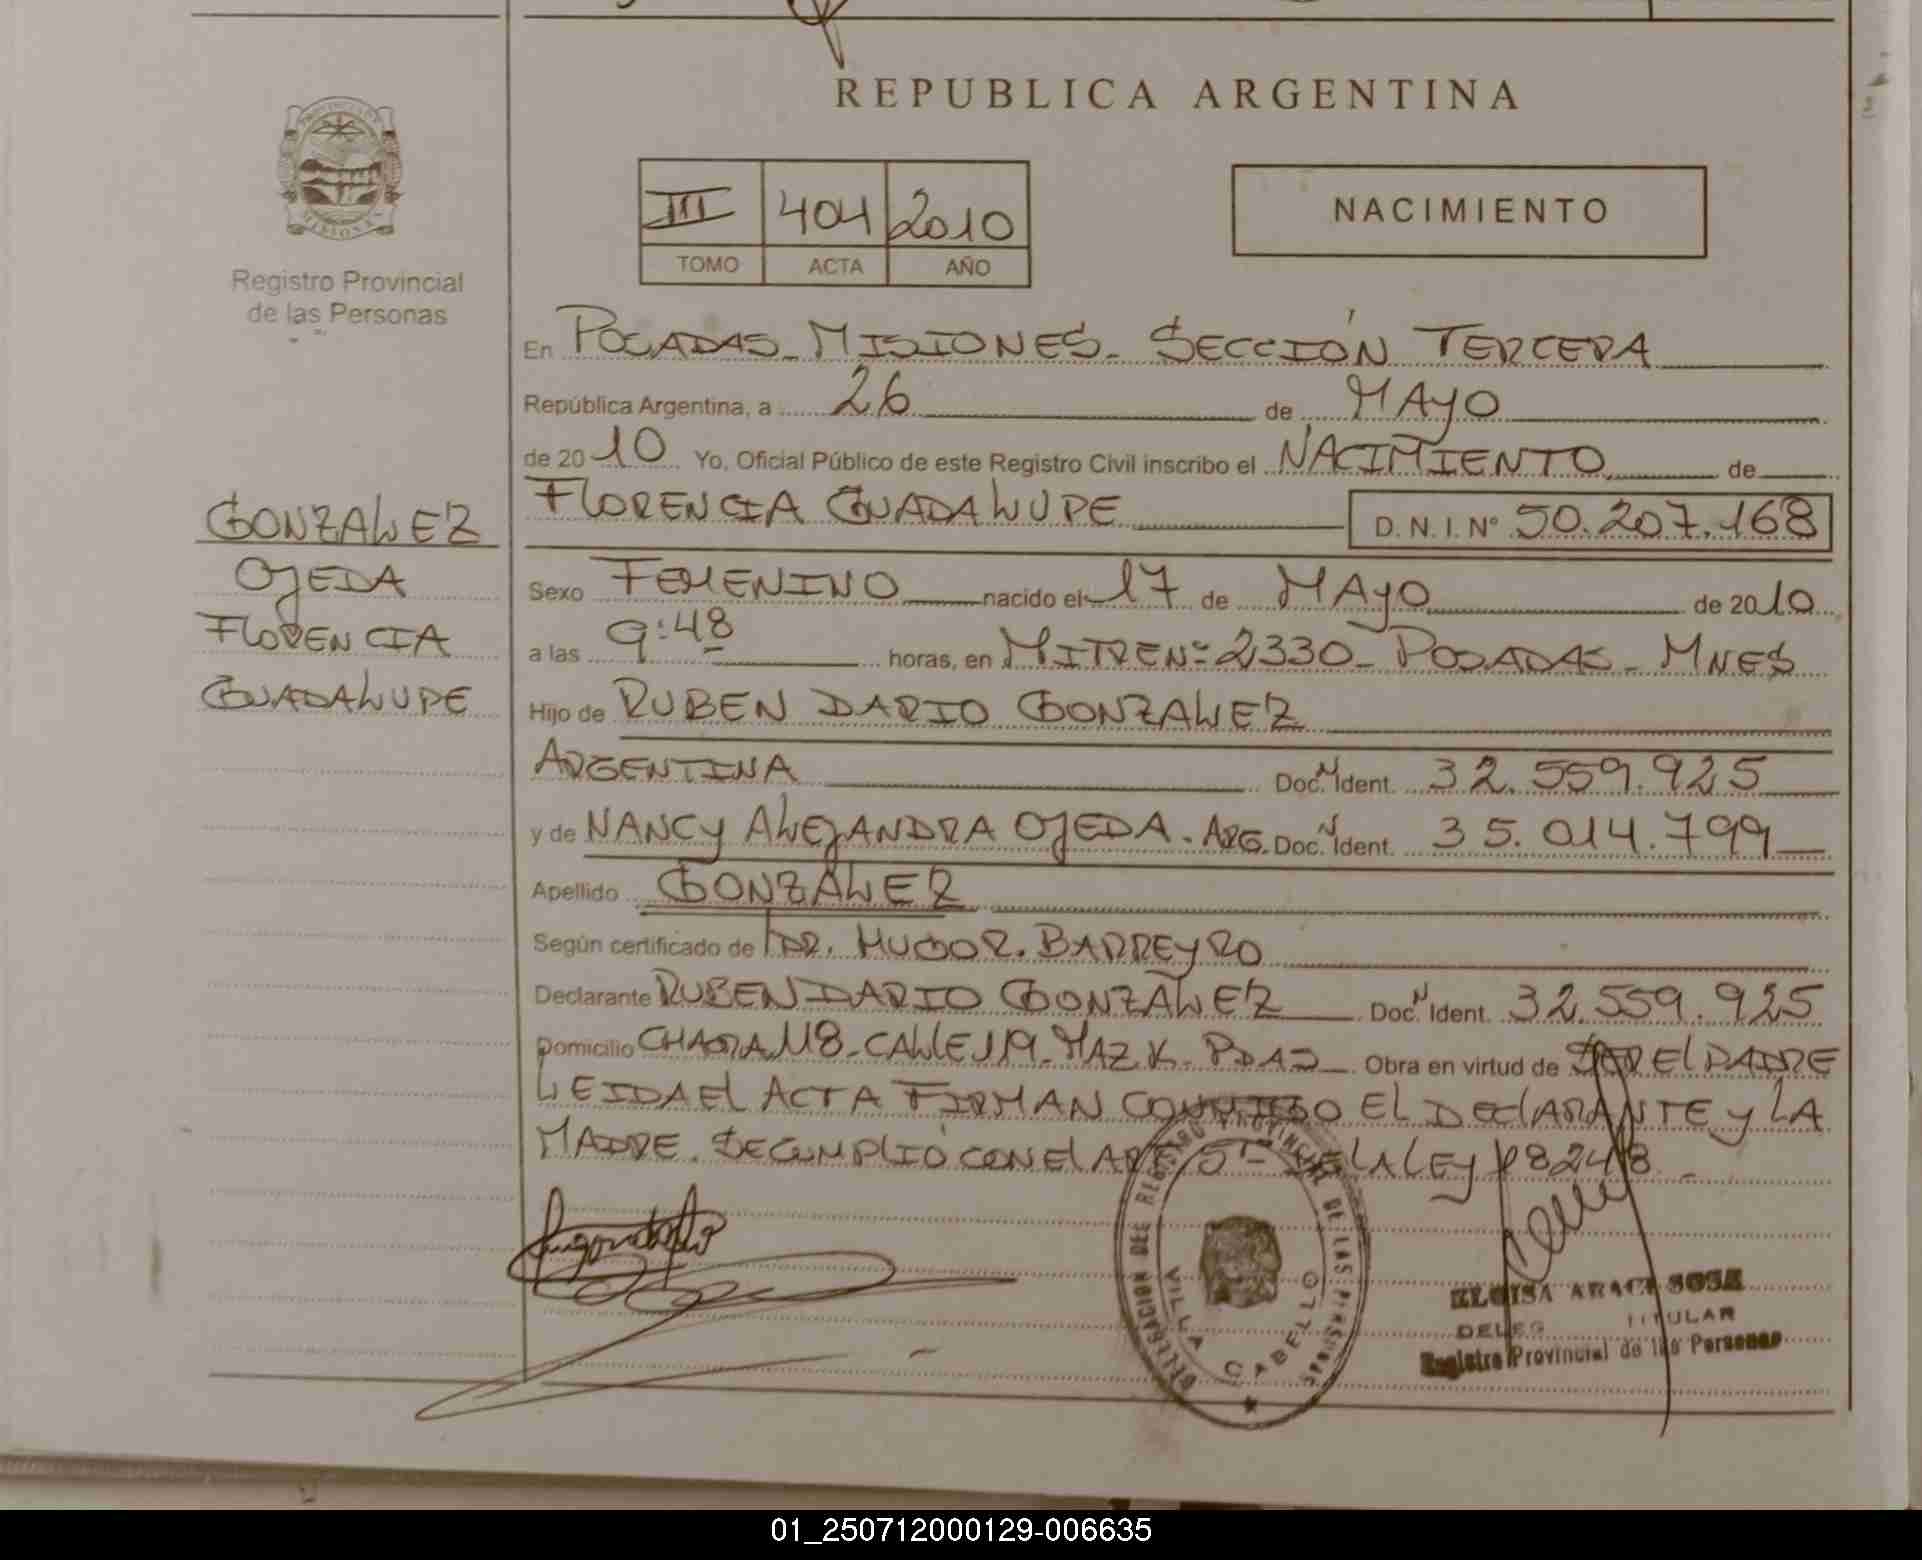 REPUBLICA ARGENTINA
III 404 2010
TOMO ACTA AÑO
NACIMIENTO
PROVINCIA DE
MISIONES
Registro Provincial
de las Personas
En POSADAS - MISIONES - SECCIÓN TERCERA
República Argentina, a 26 de MAYO
de 2010 Yo, Oficial Público de este Registro Civil inscribo el NACIMIENTO de
FLORENCIA GUADALUPE D. N. I. Nº 50.207.168
GONZALEZ
OJEDA
FLORENCIA
GUADALUPE
Sexo FEMENINO nacido el 17 de MAYO de 2010
a las 9:48 horas, en MITRE Nº 2330 - POSADAS - MNES
Hijo de RUBEN DARIO GONZALEZ
ARGENTINA Doc. N Ident. 32.559.925
y de NANCY ALEJANDRA OJEDA - ARG. Doc. N Ident. 35.014.799
Apellido GONZALEZ
Según certificado de DR. HUGO R. BARREYRO
Declarante RUBEN DARIO GONZALEZ Doc. N Ident. 32.559.925
Domicilio CHACRA 118 - CALLE 119 - MAZ K - PDAS Obra en virtud de SER EL PADRE
LEIDA EL ACTA FIRMAN CONMIGO EL DECLARANTE Y LA
MADRE. SE CUMPLIÓ CON EL ART 5º DE LA LEY 18248
DELEGACION DEL REGISTRO PROVINCIAL DE LAS PERSONAS
VILLA CABELLO
ELOISA SOSA
TITULAR
Registro Provincial de las Personas
01_250712000129-006635